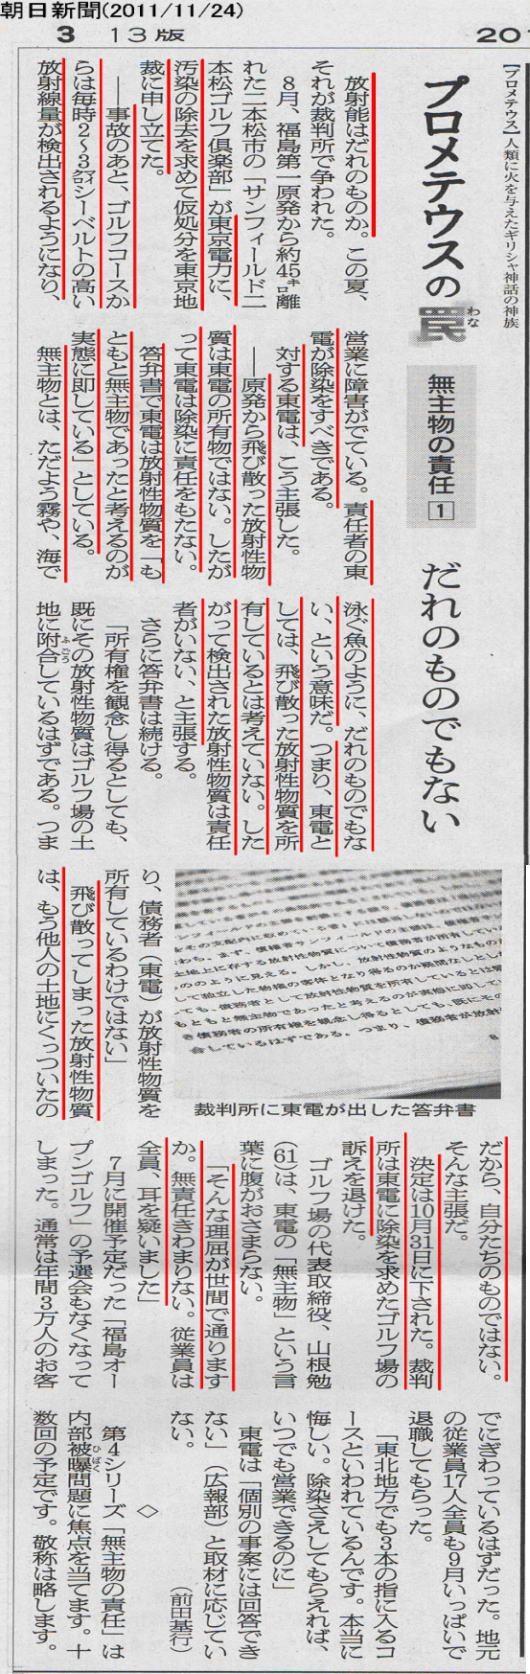 朝日新聞(2011/11/24)
3 13版
201
【プロメテウス】人類に火を与えたギリシャ神話の神族
プロメテウスの罠
わな
無主物の責任 1
だれのものでもない
放射能はだれのものか。この夏、
それが裁判所で争われた。
8月、福島第一原発から約45㌔離
れた二本松市の「サンフィールド二
本松ゴルフ倶楽部」が東京電力に、
汚染の除去を求めて仮処分を東京地
裁に申し立てた。
――事故のあと、ゴルフコースか
らは毎時2～3㍃シーベルトの高い
放射線量が検出されるようになり、
営業に障害がでている。責任者の東
電が除染をすべきである。
対する東電は、こう主張した。
――原発から飛び散った放射性物
質は東電の所有物ではない。したが
って東電は除染に責任をもたない。
答弁書で東電は放射性物質を「も
ともと無主物であったと考えるのが
実態に即している」としている。
無主物とは、ただよう霧や、海で
泳ぐ魚のように、だれのものでもな
い、という意味だ。つまり、東電と
しては、飛び散った放射性物質を所
有しているとは考えていない。した
がって検出された放射性物質は責任
者がいない、と主張する。
さらに答弁書は続ける。
「所有権を観念し得るとしても、
既にその放射性物質はゴルフ場の土
地に附合しているはずである。つま
ふごう
り、債務者（東電）が放射性物質を
所有しているわけではない」
飛び散ってしまった放射性物質
は、もう他人の土地にくっついたの
裁判所に東電が出した答弁書
だから、自分たちのものではない。
そんな主張だ。
決定は10月31日に下された。裁判
所は東電に除染を求めたゴルフ場の
訴えを退けた。
ゴルフ場の代表取締役、山根勉
（61）は、東電の「無主物」という言
葉に腹がおさまらない。
「そんな理屈が世間で通りますか
か。無責任きわまりない。従業員は
全員、耳を疑いました」
7月に開催予定だった「福島オー
プンゴルフ」の予選会もなくなって
しまった。通常は年間3万人のお客
でにぎわっているはずだった。地元
の従業員17人全員も9月いっぱいで
退職してもらった。
「東北地方でも3本の指に入るコ
ースといわれているんです。本当に
悔しい。除染さえしてもらえれば、
いつでも営業できるのに」
東電は「個別の事案には回答でき
ない」（広報部）と取材に応じてい
ない。
（前田基行）
◇
第4シリーズ「無主物の責任」は
内部被曝問題に焦点を当てます。十
ひばく
数回の予定です。敬称は略します。